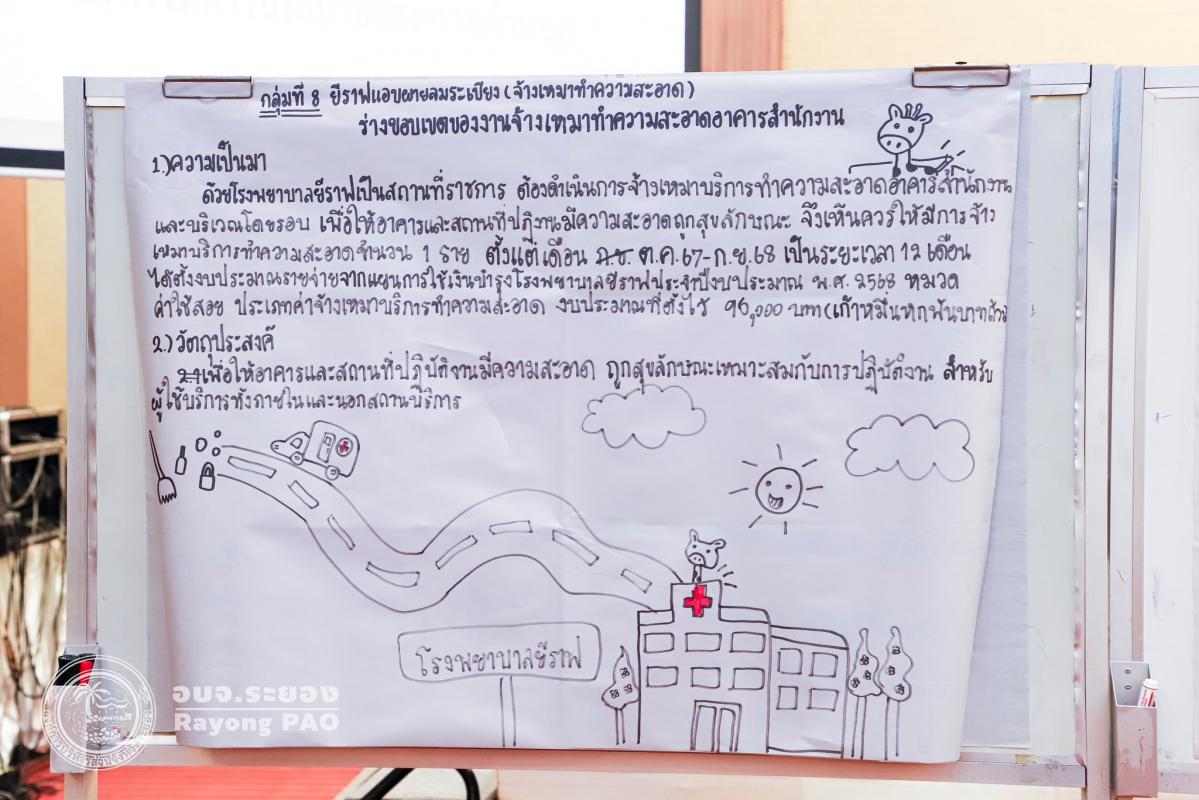 กลุ่มที่ 8 ยีราฟแอบผายลมระเบียง (จ้างเหมาทำความสะอาด)
ร่างขอบเขตของงานจ้างเหมาทำความสะอาดอาคารสำนักงาน
1.) ความเป็นมา
ด้วยโรงพยาบาลยีราฟเป็นสถานที่ราชการ ต้องดำเนินการจ้างเหมาบริการทำความสะอาดอาคารสำนักงาน
และบริเวณโดยรอบ เพื่อให้อาคารและสถานที่ปฏิงานมีความสะอาดถูกสุขลักษณะ จึงเห็นควรให้มีการจ้าง
เหมาบริการทำความสะอาดจำนวน 1 ราย ตั้งแต่เดือน ต.ค.67-ก.ย.68 เป็นระยะเวลา 12 เดือน
ได้ตั้งงบประมาณรายจ่ายจากแผนการใช้เงินบำรุงโรงพยาบาลยีราฟประจำปีงบประมาณ พ.ศ. 2568 หมวด
ค่าใช้สอย ประเภทค่าจ้างเหมาบริการทำความสะอาด งบประมาณที่ตั้งไว้ 96,000 บาท (เก้าหมื่นหกพันบาทถ้วน
2.) วัตถุประสงค์
2.1 เพื่อให้อาคารและสถานที่ปฏิบัติงานมีความสะอาด ถูกสุขลักษณะเหมาะสมกับการปฏิบัติงาน สำหรับ
ผู้ใช้บริการทั้งภายในและนอกสถานบริการ
โรงพยาบาลยีราฟ
อบจ.ระยอง
Rayong PAO